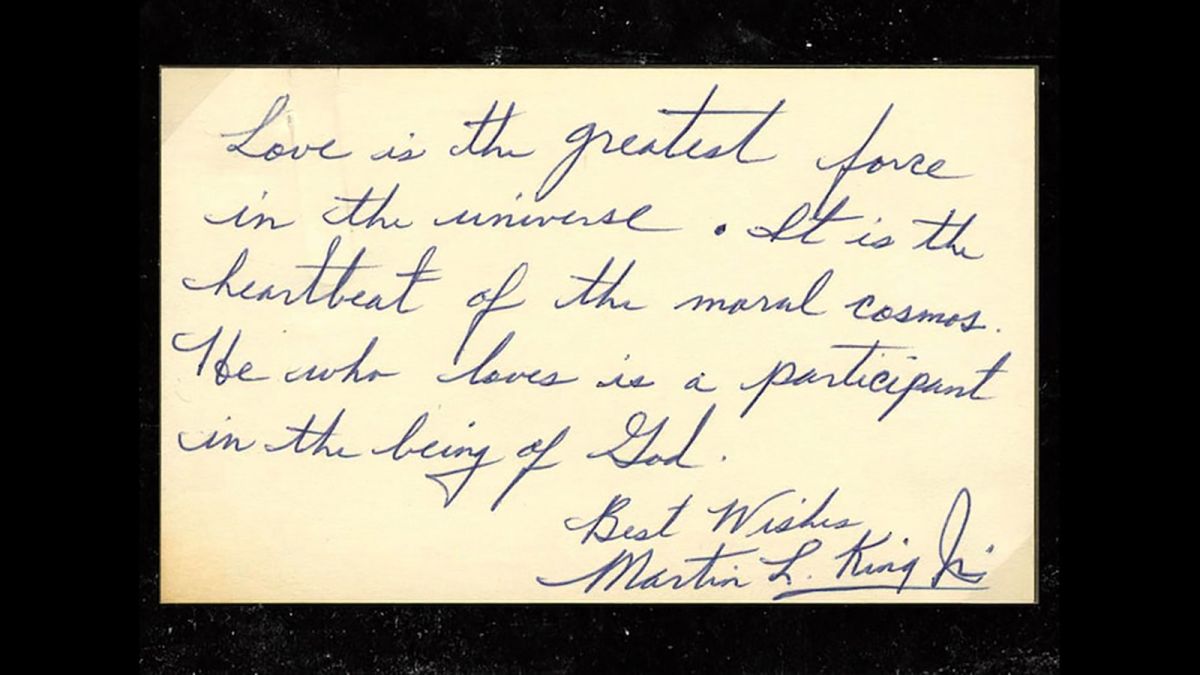 Love is the greatest force
in the universe. It is the
heartbeat of the moral cosmos.
He who loves is a participant
in the being of God.
Best Wishes
Martin L. King Jr.